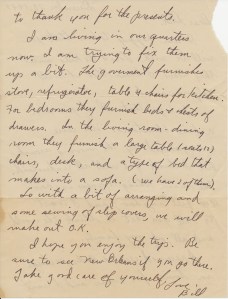 to thank you for the presents.
I am living in our quarters
now. I am trying to fix them
up a bit. The goverment furnishes
stove, refrigirator, table & chairs for kitchen.
For bedrooms they furnish beds & chests of
drawers. In the living room - dining
room they furnish a large table (seats 12)
chairs, desk, and a type of bed that
makes into a sofa. (we have 2 of them).
So with a bit of arranging and
some sewing of slip covers, we will
make out O.K.
I hope you enjoy the trip. Be
sure to see New Orleans if you go there.
Take good care of yourself.
Love,
Bill